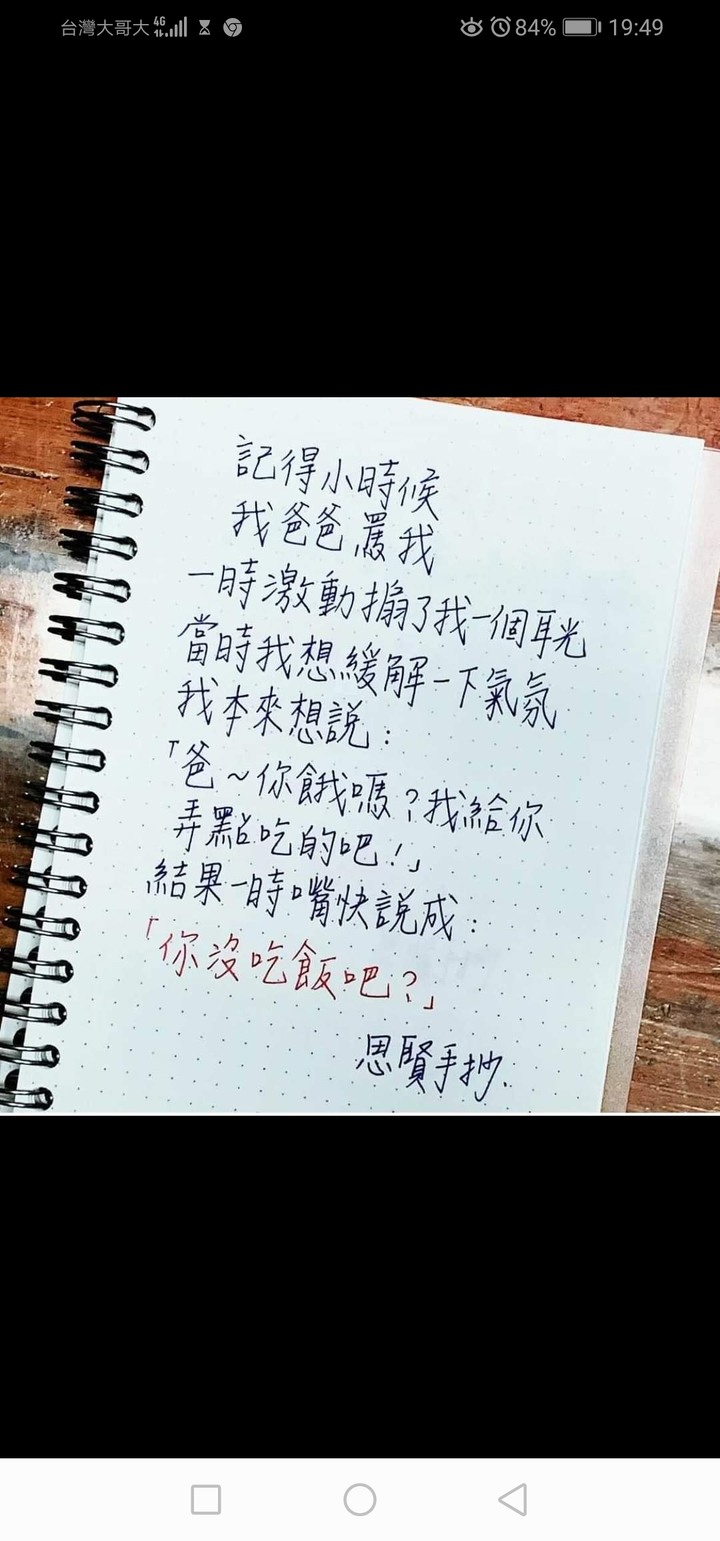 台灣大哥大 4G 84% 19:49
記得小時候
我爸爸罵我
一時激動搧了我一個耳光
當時我想緩解一下氣氛
我本來想說：
「爸～你餓嗎？我給你
弄點吃的吧！」
結果一時嘴快說成：
「你沒吃飯吧？」
思賢手抄.